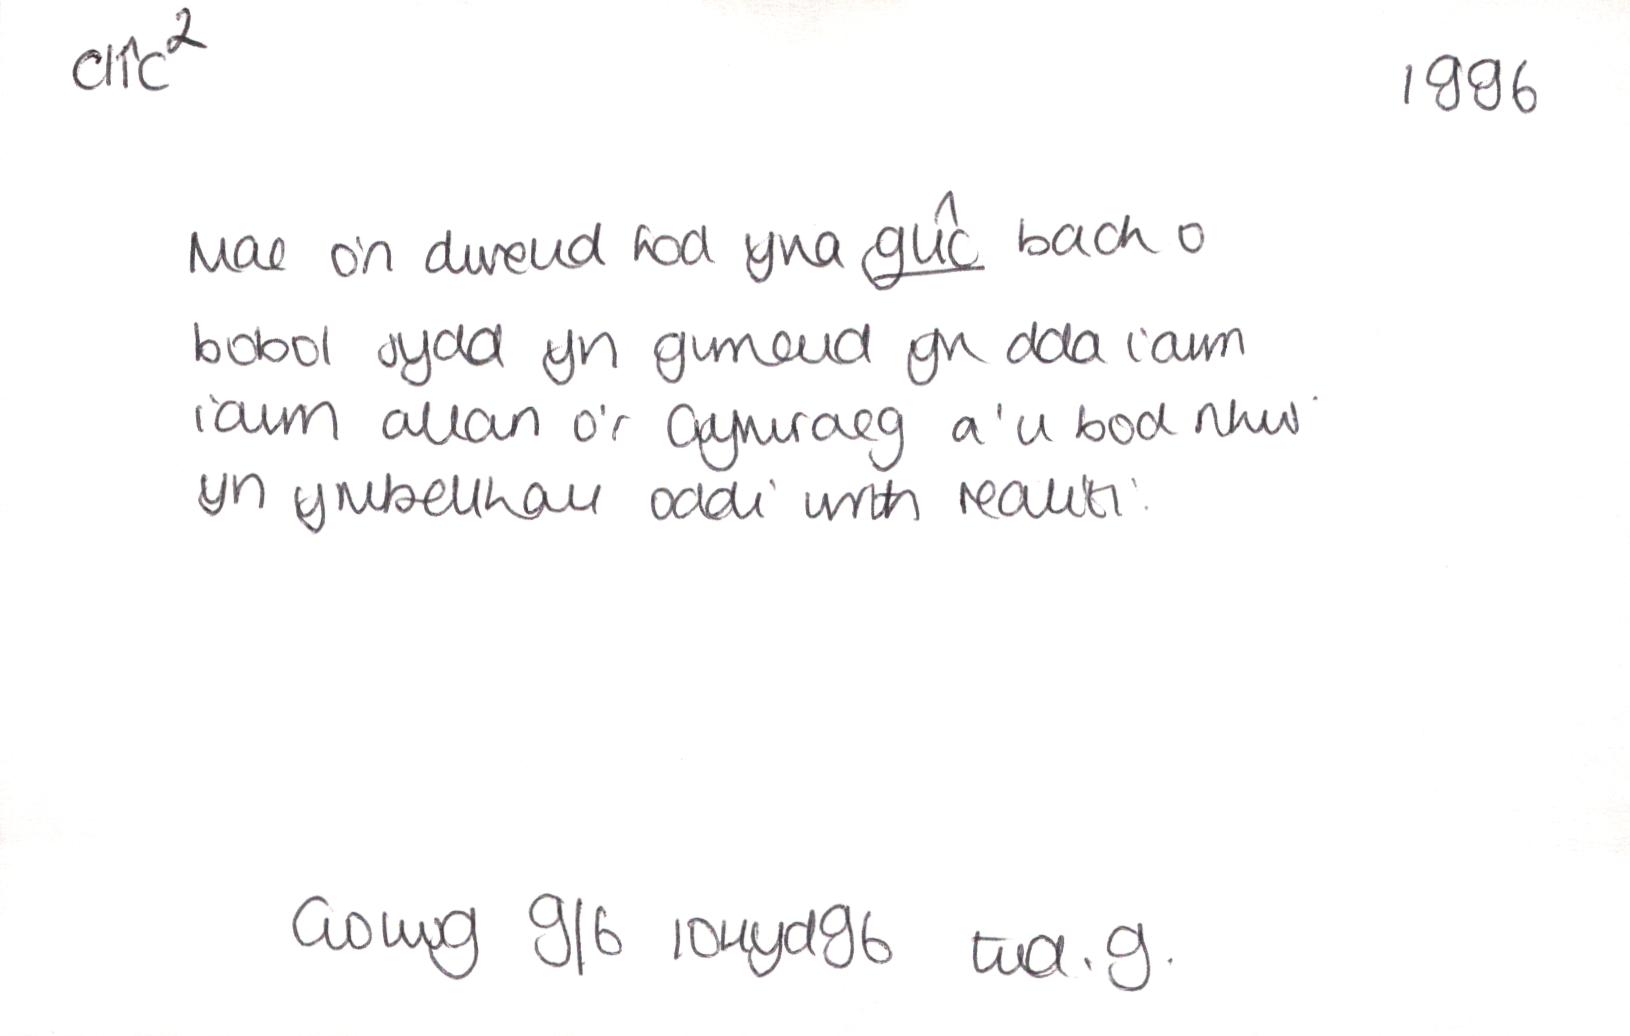 clîc² 1996
Mae o'n dweud fod yna glîc bach o
bobol sydd yn gwneud yn dda iawn
iawn allan o'r Gymraeg a'u bod nhw
yn ymbellhau oddi wrth realiti.
Golwg 9/6 10Hyd96 tud.9.